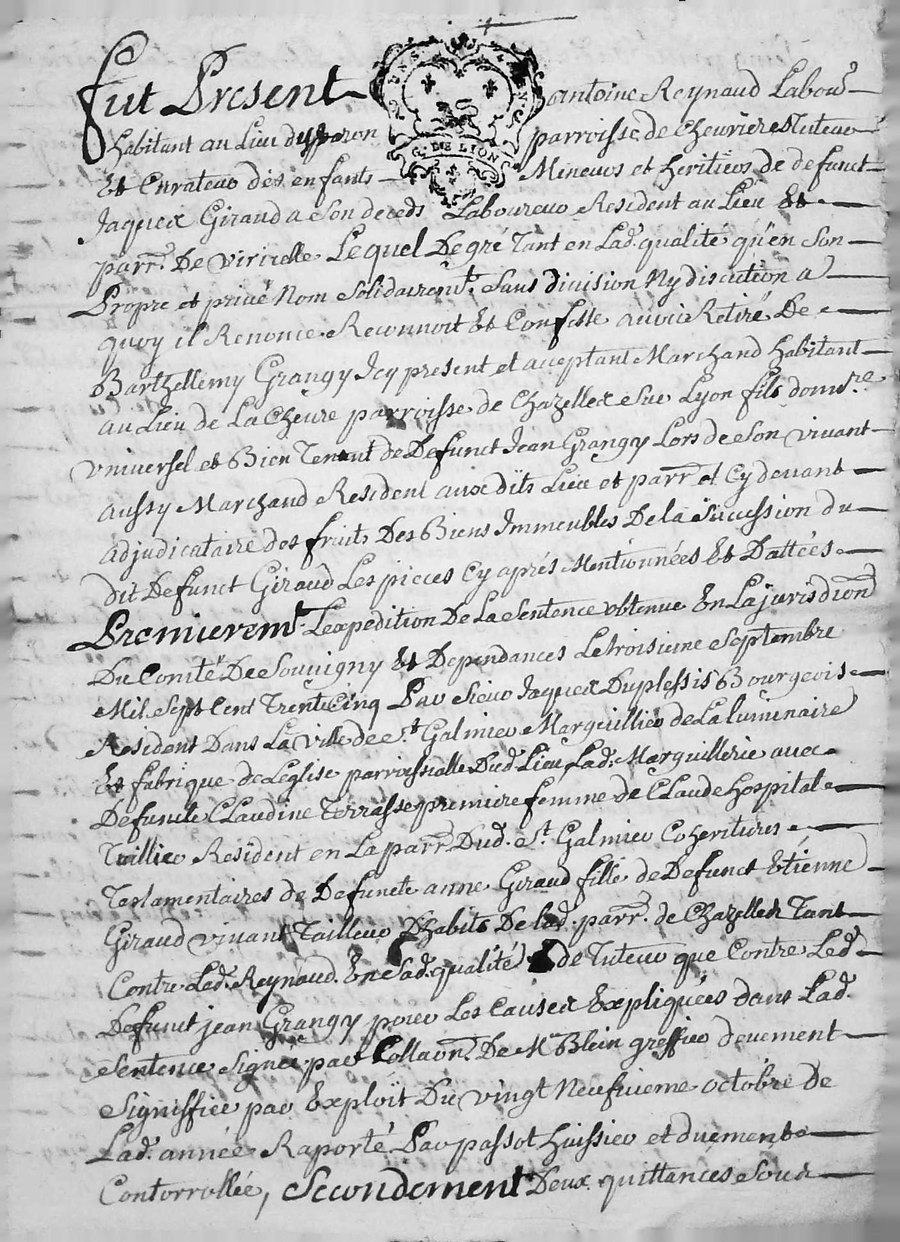 fut Present antoine Reynaud Labour
habitant au Lieu du peron parroisse de chevriere tuteur
G. DE LION
Et Curateur des enfants Mineurs et heritiers de defunct
Jaques Giraud a Son deceds Laboureur Resident au Lieu Et
parr. De viricelle Lequel De gré Tant en Lad. qualité qu'en Son
Propre et privé Nom Solidairemt. Sans division Ny discution a
quoy il Renonce Reconnoit Et Confesse avoir Retiré De
Barthellemy Grangy Icy present et aceptant Marchand habitant
au Lieu de La Chevre parroisse de Chazelles Sur Lyon fils
Vniversel et Bien Tenant de Defunct Jean Grangy Lors de Son vivant
aussy Marchand Resident auxdits Lieu et parr. et Cy devant
adjudicataire des fruits Des Biens Immeubles De La Sucession du
dit Defunct Giraud Les pieces Cy aprés Mentionnées Et Dattées
Premieremt. Lexpedition De La Sentence obtenue En La jurisdion
Du Comté De Souvigny Et Dependances Le troisieme Septembre
Mil Sept Cent Trente Cinq Par Sieur Jaques Duplessis Bourgeois
Resident Dans La ville de St. Galmier Marguillier de La Luminaire
Et fabrique de Leglise parroissialle Dud. Lieu Lad. Marguillerie avec
Defuncte Claudine Terrasse premiere femme de Claude hospital
Tuillier Resident en La parr. Dud. St. Galmier Coheritieres
Testamentaires de Defuncte anne Giraud fille de Defunct Etienne
Giraud vivant Tailleur D'habits De lad. parr. de Chazelles Tant
Contre Led. Reynaud En Sad. qualité de Tuteur que Contre Led.
Defunct jean Grangy pour Les Causes Expliquées dans Lad.
Sentence Signée par Collaon. De Mr Blein greffier deuement
Signiffiée par Exploit Du vingt Neufvieme octobre de
Lad. année Raporté Par passot huissier et duement
Contorrollée, Secondement Deux quittances Sous